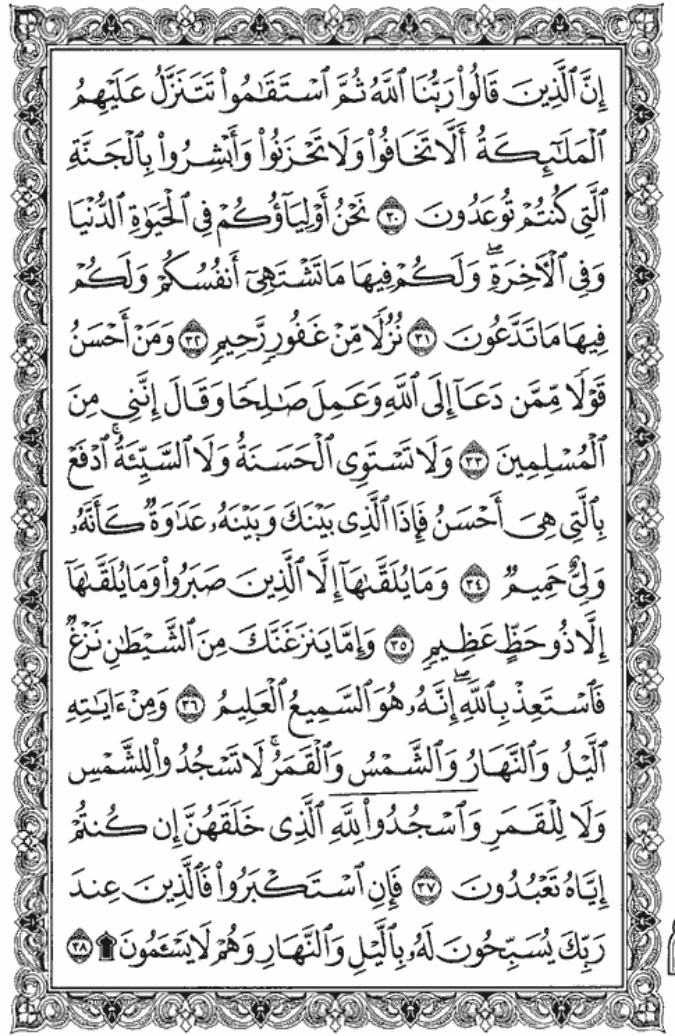 إِنَّ ٱلَّذِينَ قَالُوا۟ رَبُّنَا ٱللَّهُ ثُمَّ ٱسْتَقَـٰمُوا۟ تَتَنَزَّلُ عَلَيْهِمُ
ٱلْمَلَـٰٓئِكَةُ أَلَّا تَخَافُوا۟ وَلَا تَحْزَنُوا۟ وَأَبْشِرُوا۟ بِٱلْجَنَّةِ
ٱلَّتِى كُنتُمْ تُوعَدُونَ ٣٠ نَحْنُ أَوْلِيَآؤُكُمْ فِى ٱلْحَيَوٰةِ ٱلدُّنْيَا
وَفِى ٱلْـَٔاخِرَةِ ۖ وَلَكُمْ فِيهَا مَا تَشْتَهِىٓ أَنفُسُكُمْ وَلَكُمْ
فِيهَا مَا تَدَّعُونَ ٣١ نُزُلًا مِّنْ غَفُورٍ رَّحِيمٍ ٣٢ وَمَنْ أَحْسَنُ
قَوْلًا مِّمَّن دَعَآ إِلَى ٱللَّهِ وَعَمِلَ صَـٰلِحًا وَقَالَ إِنَّنِى مِنَ
ٱلْمُسْلِمِينَ ٣٣ وَلَا تَسْتَوِى ٱلْحَسَنَةُ وَلَا ٱلسَّيِّئَةُ ۚ ٱدْفَعْ
بِٱلَّتِى هِىَ أَحْسَنُ فَإِذَا ٱلَّذِى بَيْنَكَ وَبَيْنَهُۥ عَدَٰوَةٌ كَأَنَّهُۥ
وَلِىٌّ حَمِيمٌ ٣٤ وَمَا يُلَقَّىٰهَآ إِلَّا ٱلَّذِينَ صَبَرُوا۟ وَمَا يُلَقَّىٰهَآ
إِلَّا ذُو حَظٍّ عَظِيمٍ ٣٥ وَإِمَّا يَنزَغَنَّكَ مِنَ ٱلشَّيْطَـٰنِ نَزْغٌ
فَٱسْتَعِذْ بِٱللَّهِ ۖ إِنَّهُۥ هُوَ ٱلسَّمِيعُ ٱلْعَلِيمُ ٣٦ وَمِنْ ءَايَـٰتِهِ
ٱلَّيْلُ وَٱلنَّهَارُ وَٱلشَّمْسُ وَٱلْقَمَرُ ۚ لَا تَسْجُدُوا۟ لِلشَّمْسِ
وَلَا لِلْقَمَرِ وَٱسْجُدُوا۟ لِلَّهِ ٱلَّذِى خَلَقَهُنَّ إِن كُنتُمْ
إِيَّاهُ تَعْبُدُونَ ٣٧ فَإِنِ ٱسْتَكْبَرُوا۟ فَٱلَّذِينَ عِندَ
رَبِّكَ يُسَبِّحُونَ لَهُۥ بِٱلَّيْلِ وَٱلنَّهَارِ وَهُمْ لَا يَسْـَٔمُونَ ۩ ٣٨